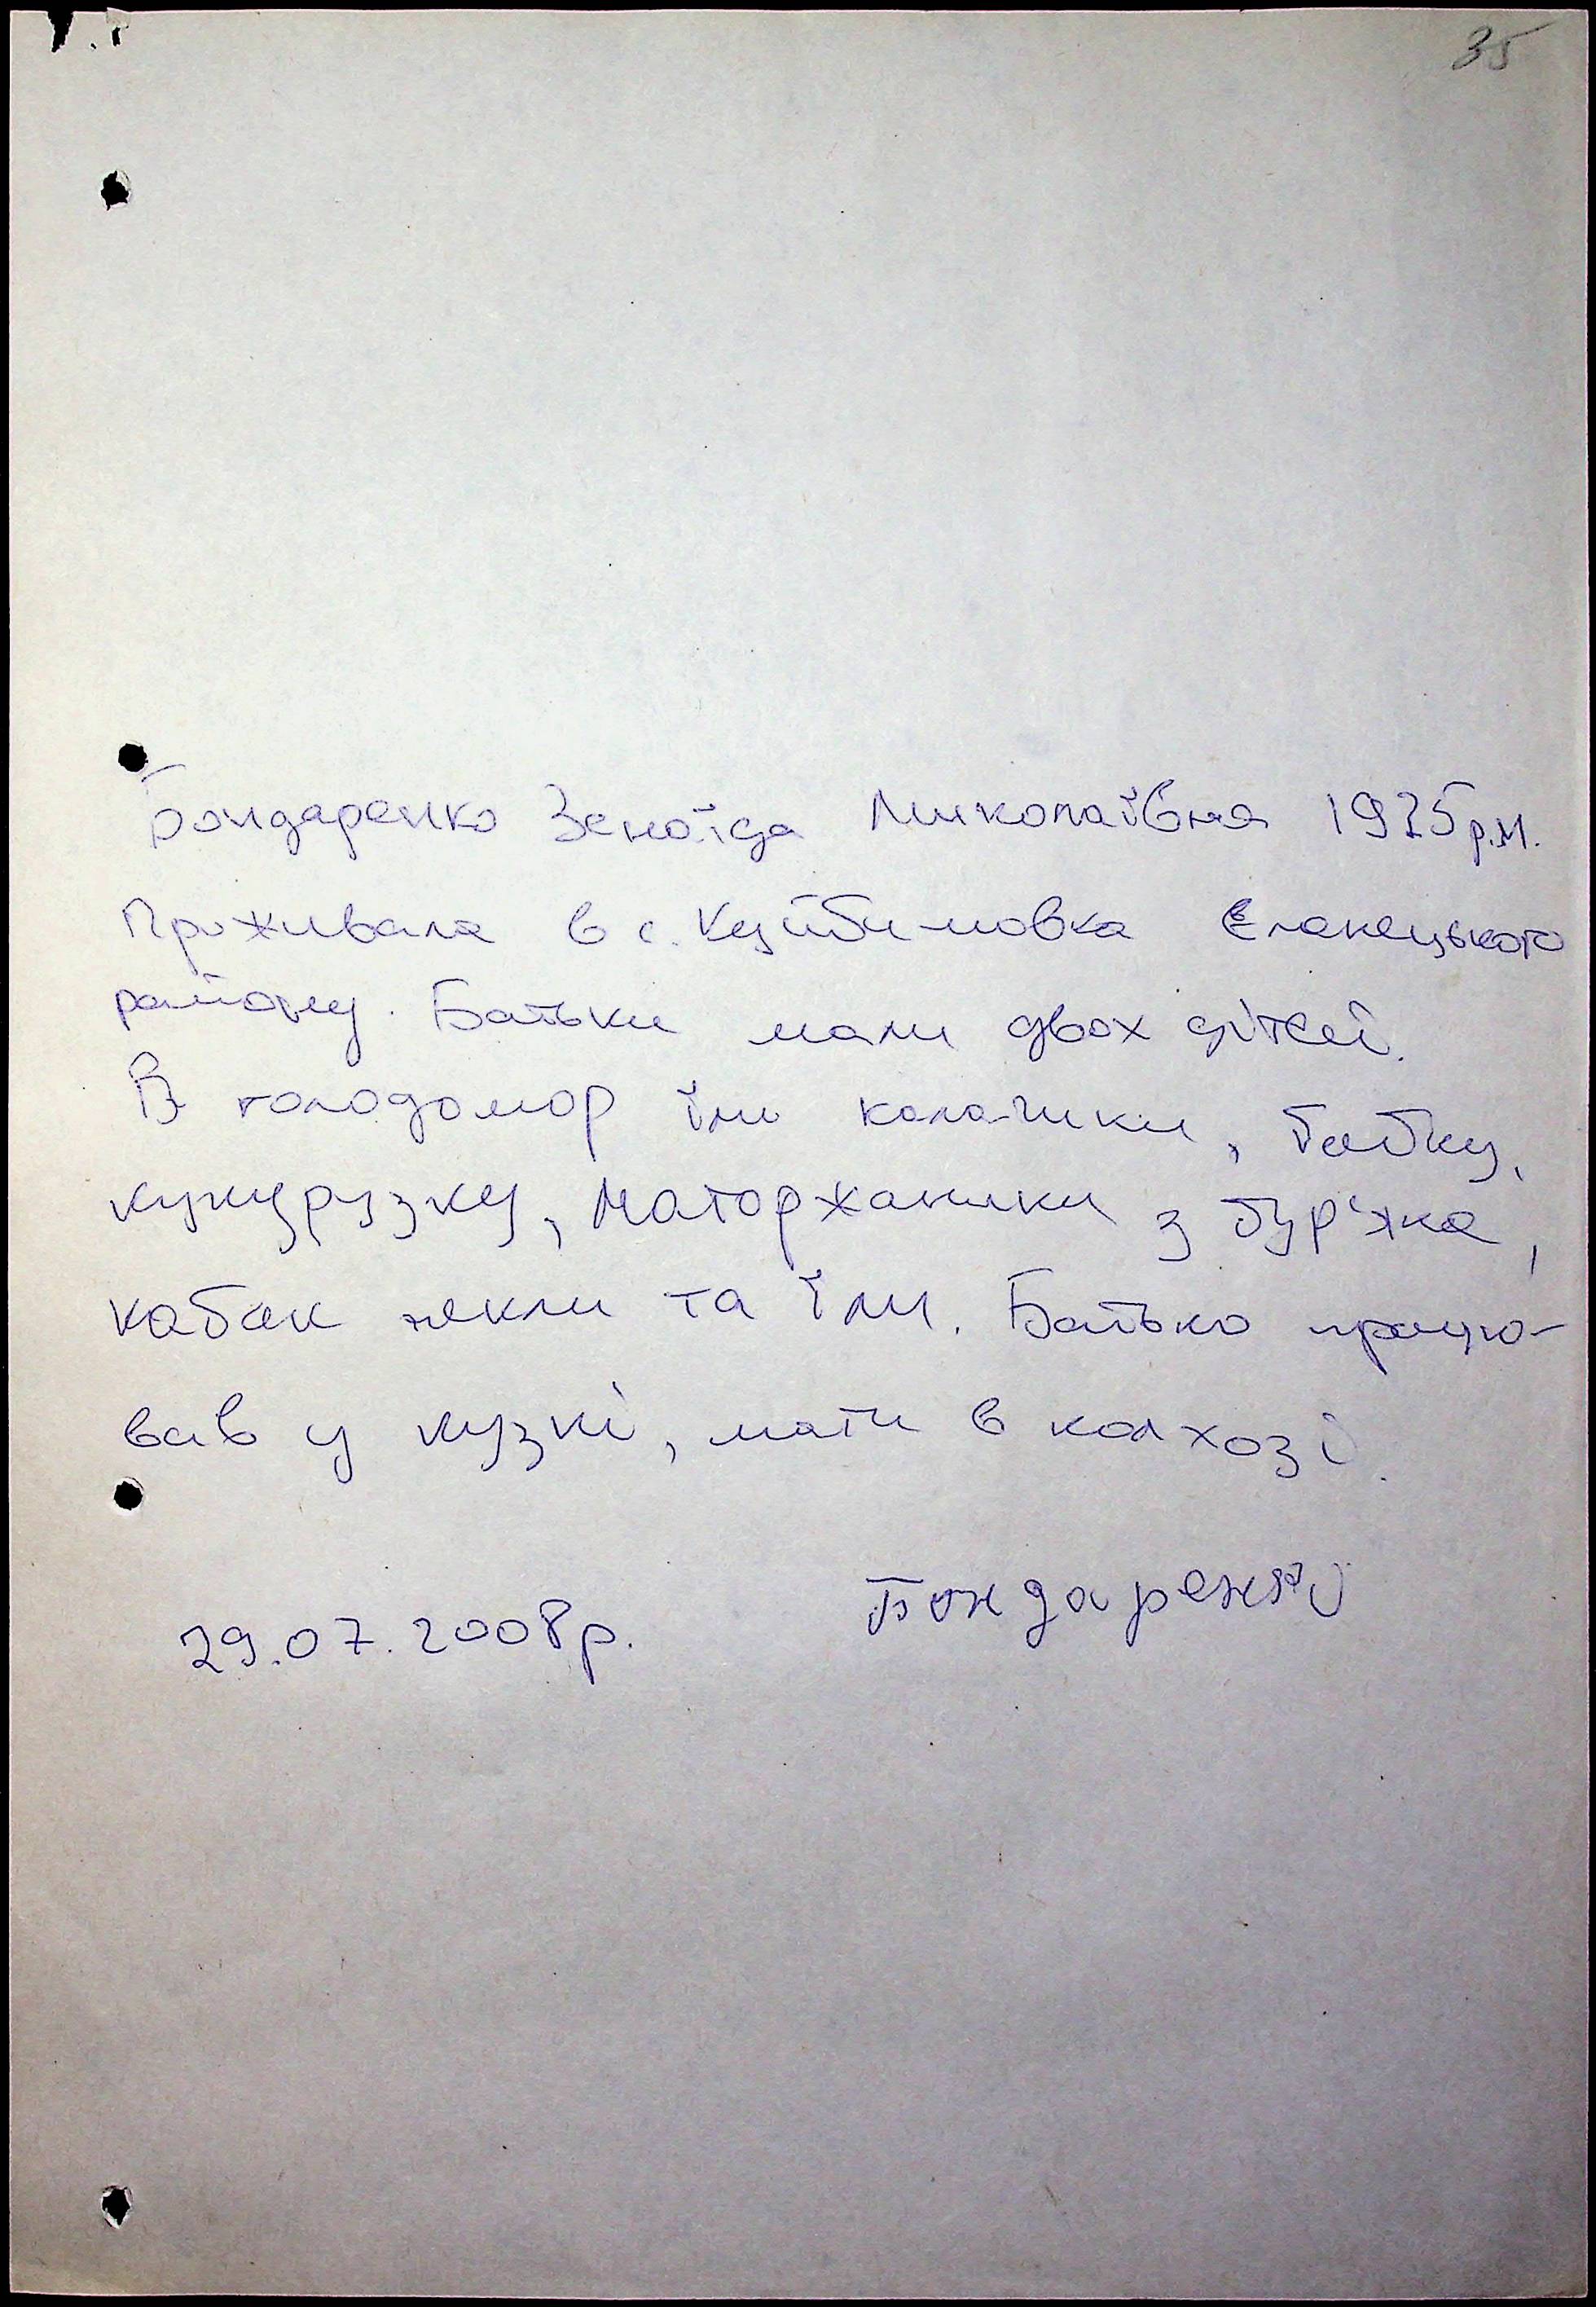 35
Бондаренко Зеноїда Миколаївна 1925 р.н.
Проживала в с. Куйбишовка Єланецького
району. Батьки мали двох дітей.
В голодомор їли калачики, бабку,
кукурузку, маторжаники з бур'яка,
кабак пекли та їли. Батько працю-
вав у кузні, мати в колхозі.
29.07.2008р. Бондаренко